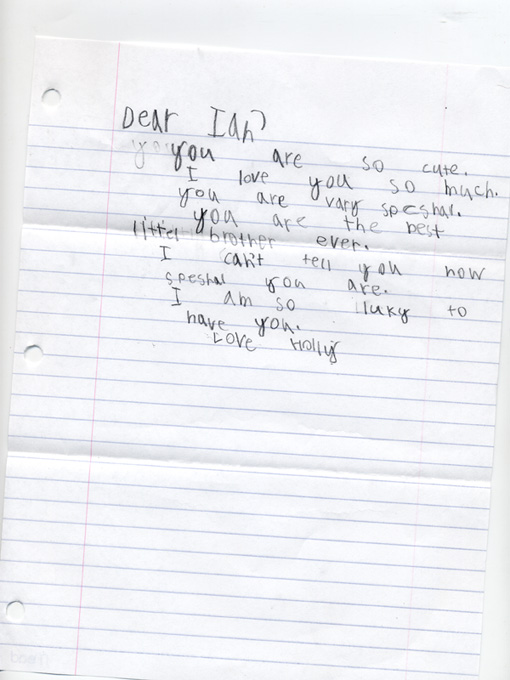 Dear Ian,
you are so cute.
I love you so much.
you are vary speshal.
you are the best
littel brother ever.
I can't tell you how
speshal you are.
I am so lluky to
have you.
Love Holly